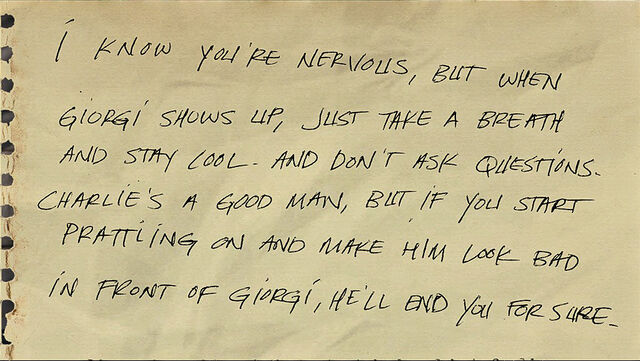 I KNOW YOU'RE NERVOUS, BUT WHEN
GIORGI SHOWS UP, JUST TAKE A BREATH
AND STAY COOL. AND DON'T ASK QUESTIONS.
CHARLIE'S A GOOD MAN, BUT IF YOU START
PRATTLING ON AND MAKE HIM LOOK BAD
IN FRONT OF GIORGI, HE'LL END YOU FOR SURE.